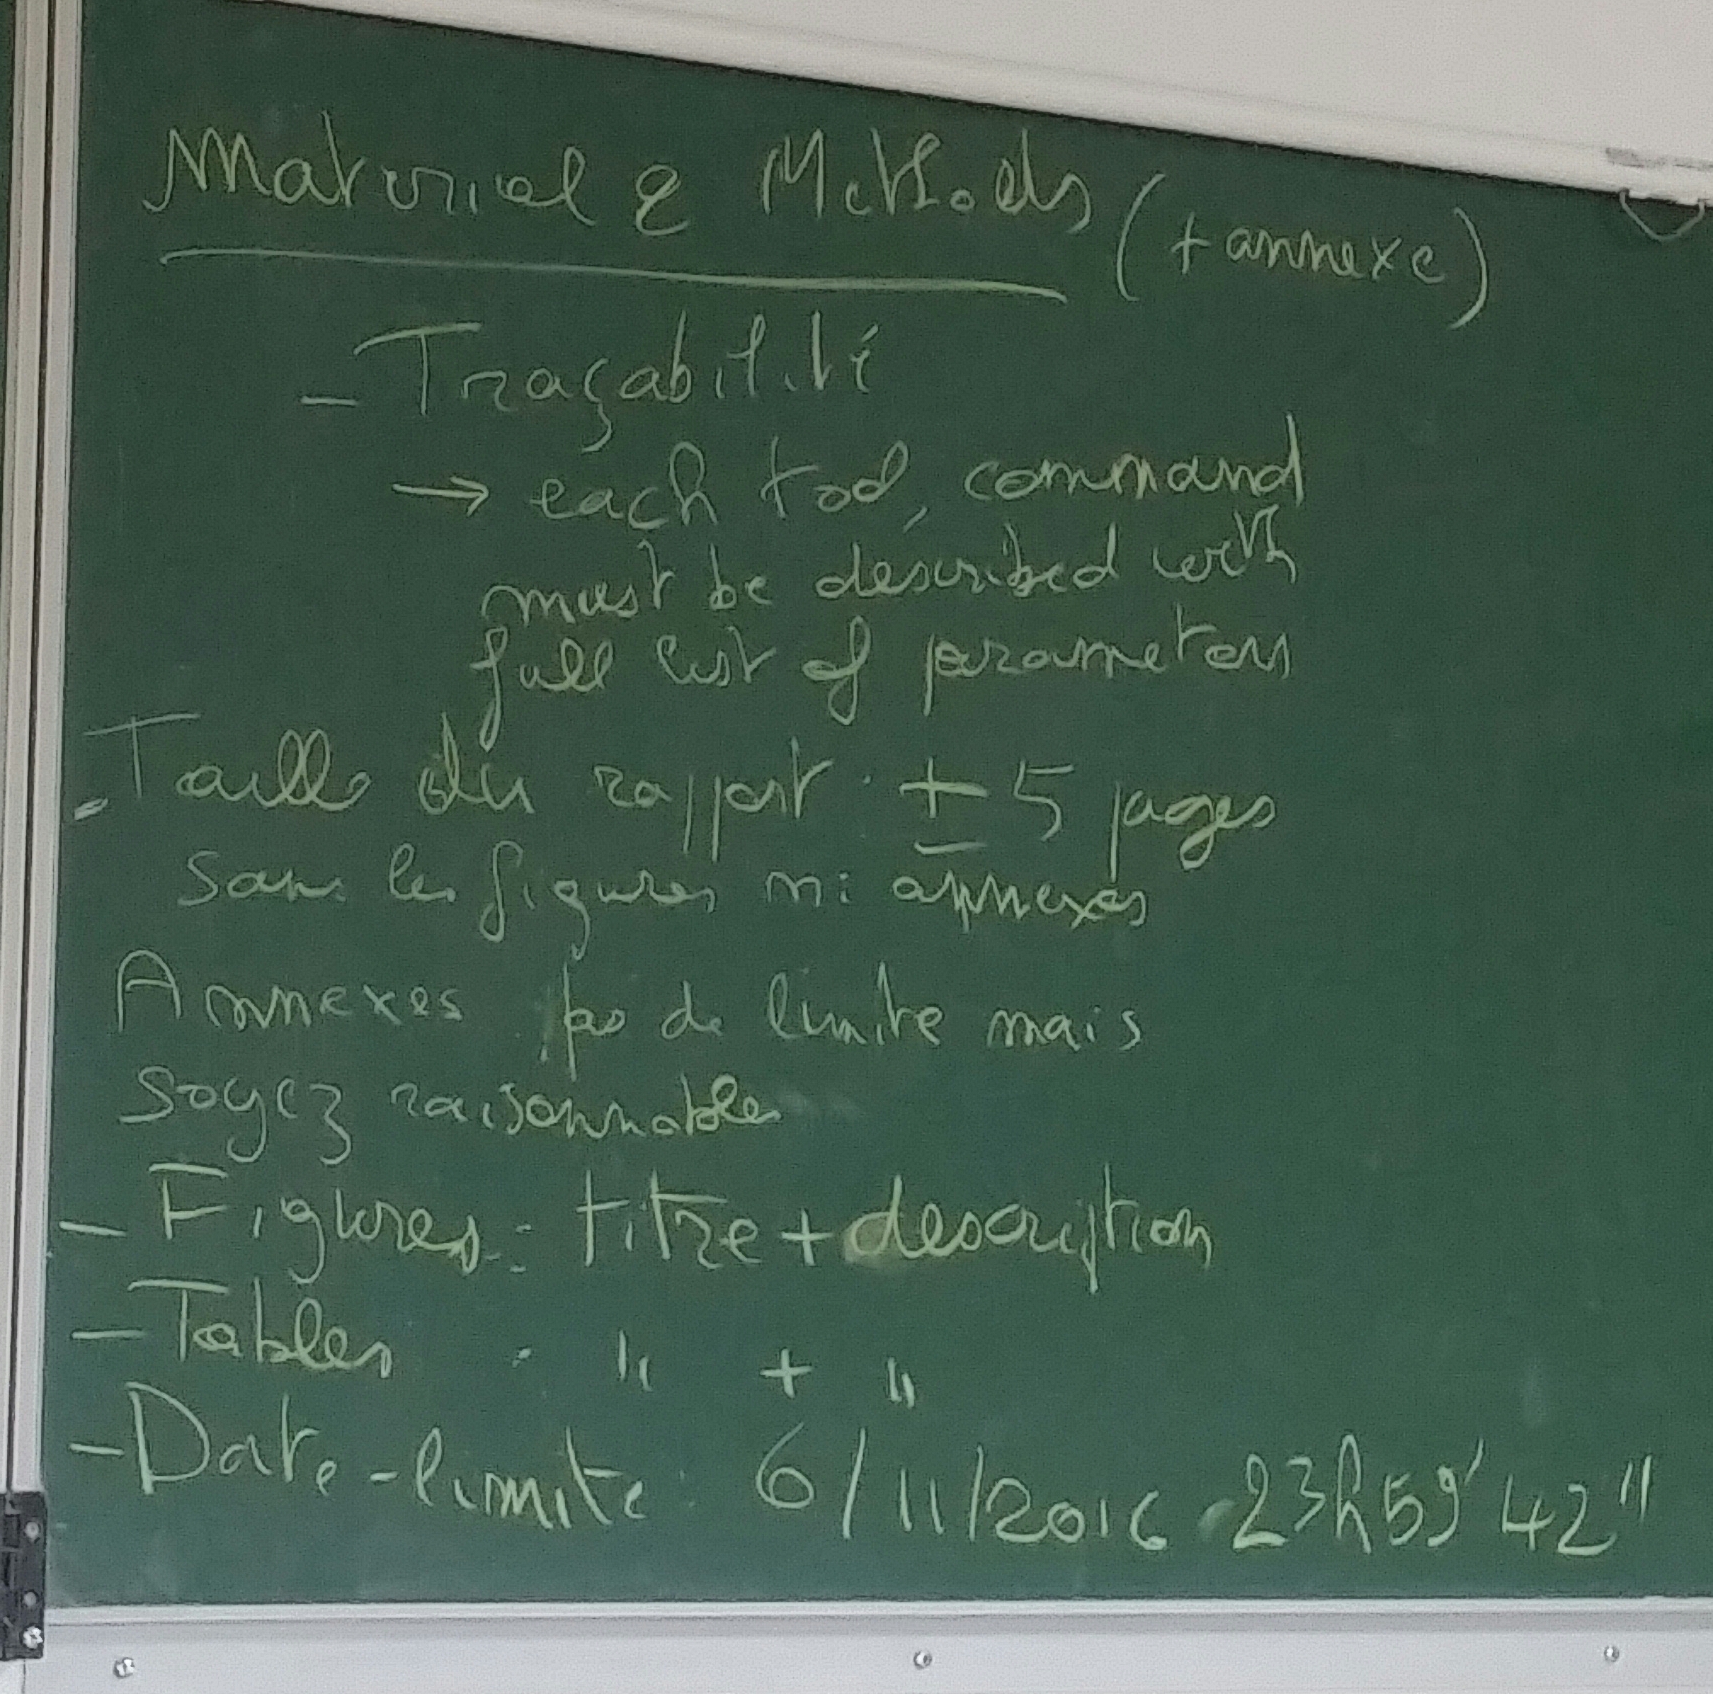 Material & Methods (+ annexe)
- Traçabilité
→ each tool, command
must be described with
full list of parameters
- Taille du rapport : ± 5 pages
sans les figures ni annexes
Annexes : pas de limite mais
soyez raisonnables
- Figures : titre + description
- Tables : " + "
- Date-limite : 6/11/2016 - 23h59'42"